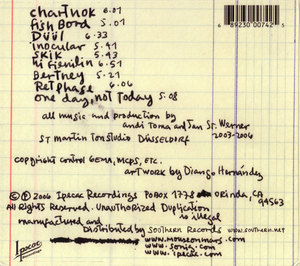 chartnok 6.01
fish Bord 5.01
Düül 6.33
inocular 5.41
skik 5.43
hi fienilin 6.51
Bertney 5.21
Retphase 6.06
one day, not Today 5.08
6 89230 00742
all music and production by
andi Toma and Jan St. Werner
ST martin Tonstudio DÜSSELDORF 2003-2006
copyright control GEMA, MCPS, ETC.
artwork by Diango Hernández
© ℗ 2006 Ipecac Recordings PO BOX 1778 ORINDA, CA 94563
All Rights Reserved. Unauthorized Duplication is illegal
manufactured and
Distributed by southern Records www.southern.net
www.mouseonmars.com
www.sonig.com
www.ipecac.com
Ipecac